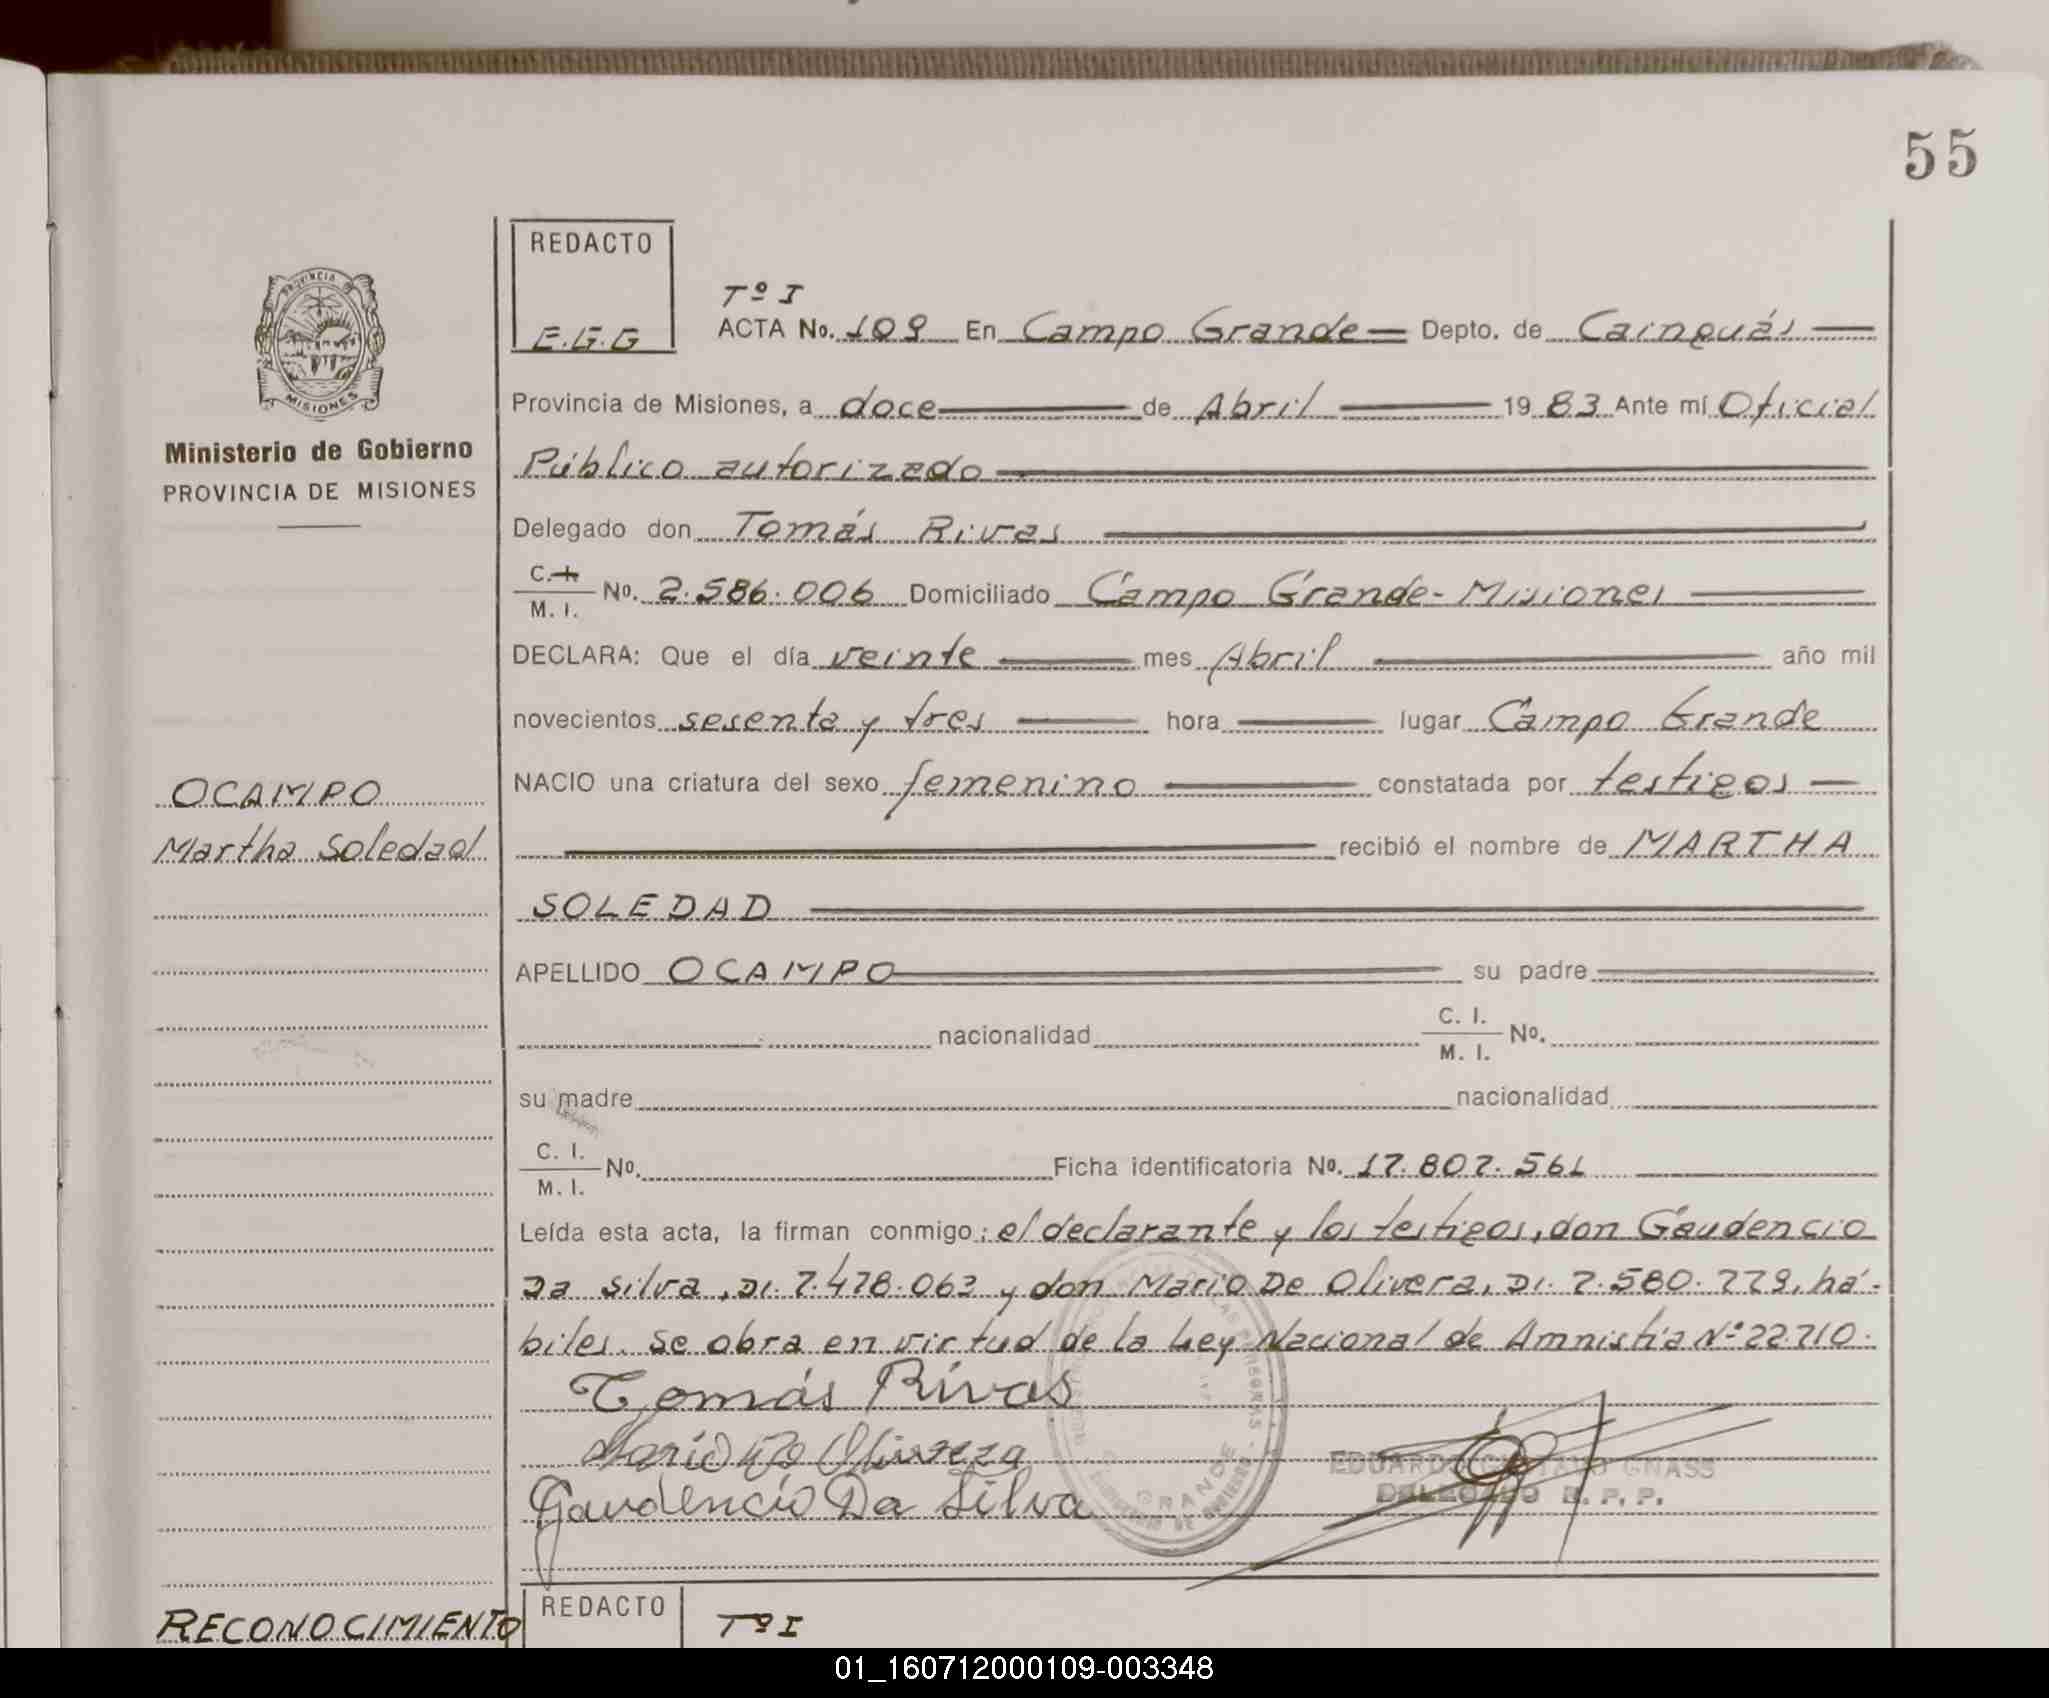 55
REDACTO
E.G.G
Tº I
ACTA No. 109 En Campo Grande Depto. de Cainguás
Provincia de Misiones, a doce de Abril 19 83 Ante mí Oficial
Público autorizado
Delegado don Tomás Rivas
C. I.
M. I.
No. 2.586.006 Domiciliado Campo Grande - Misiones
DECLARA: Que el día veinte mes Abril año mil
novecientos sesenta y tres hora lugar Campo Grande
NACIO una criatura del sexo femenino constatada por testigos
recibió el nombre de MARTHA
SOLEDAD
APELLIDO OCAMPO su padre
nacionalidad C. I. M. I. No.
su madre nacionalidad
C. I. M. I. No. Ficha identificatoria No. 17.807.561
Leída esta acta, la firman conmigo: el declarante y los testigos, don Gaudencio
Da Silva, DI. 7.478.063 y don Mario De Olivera, DI. 7.580.779, há-
biles. Se obra en virtud de la Ley Nacional de Amnistía Nº 22.710.
Tomás Rivas
Mario De Olivera
Gaudencio Da Silva
GRANDE
EDUARDO GUSTAVO GNASS
DELEGADO R. P. P.
PROVINCIA
MISIONES
Ministerio de Gobierno
PROVINCIA DE MISIONES
OCAMPO
Martha Soledad
RECONOCIMIENTO
REDACTO
Tº I
01_160712000109-003348